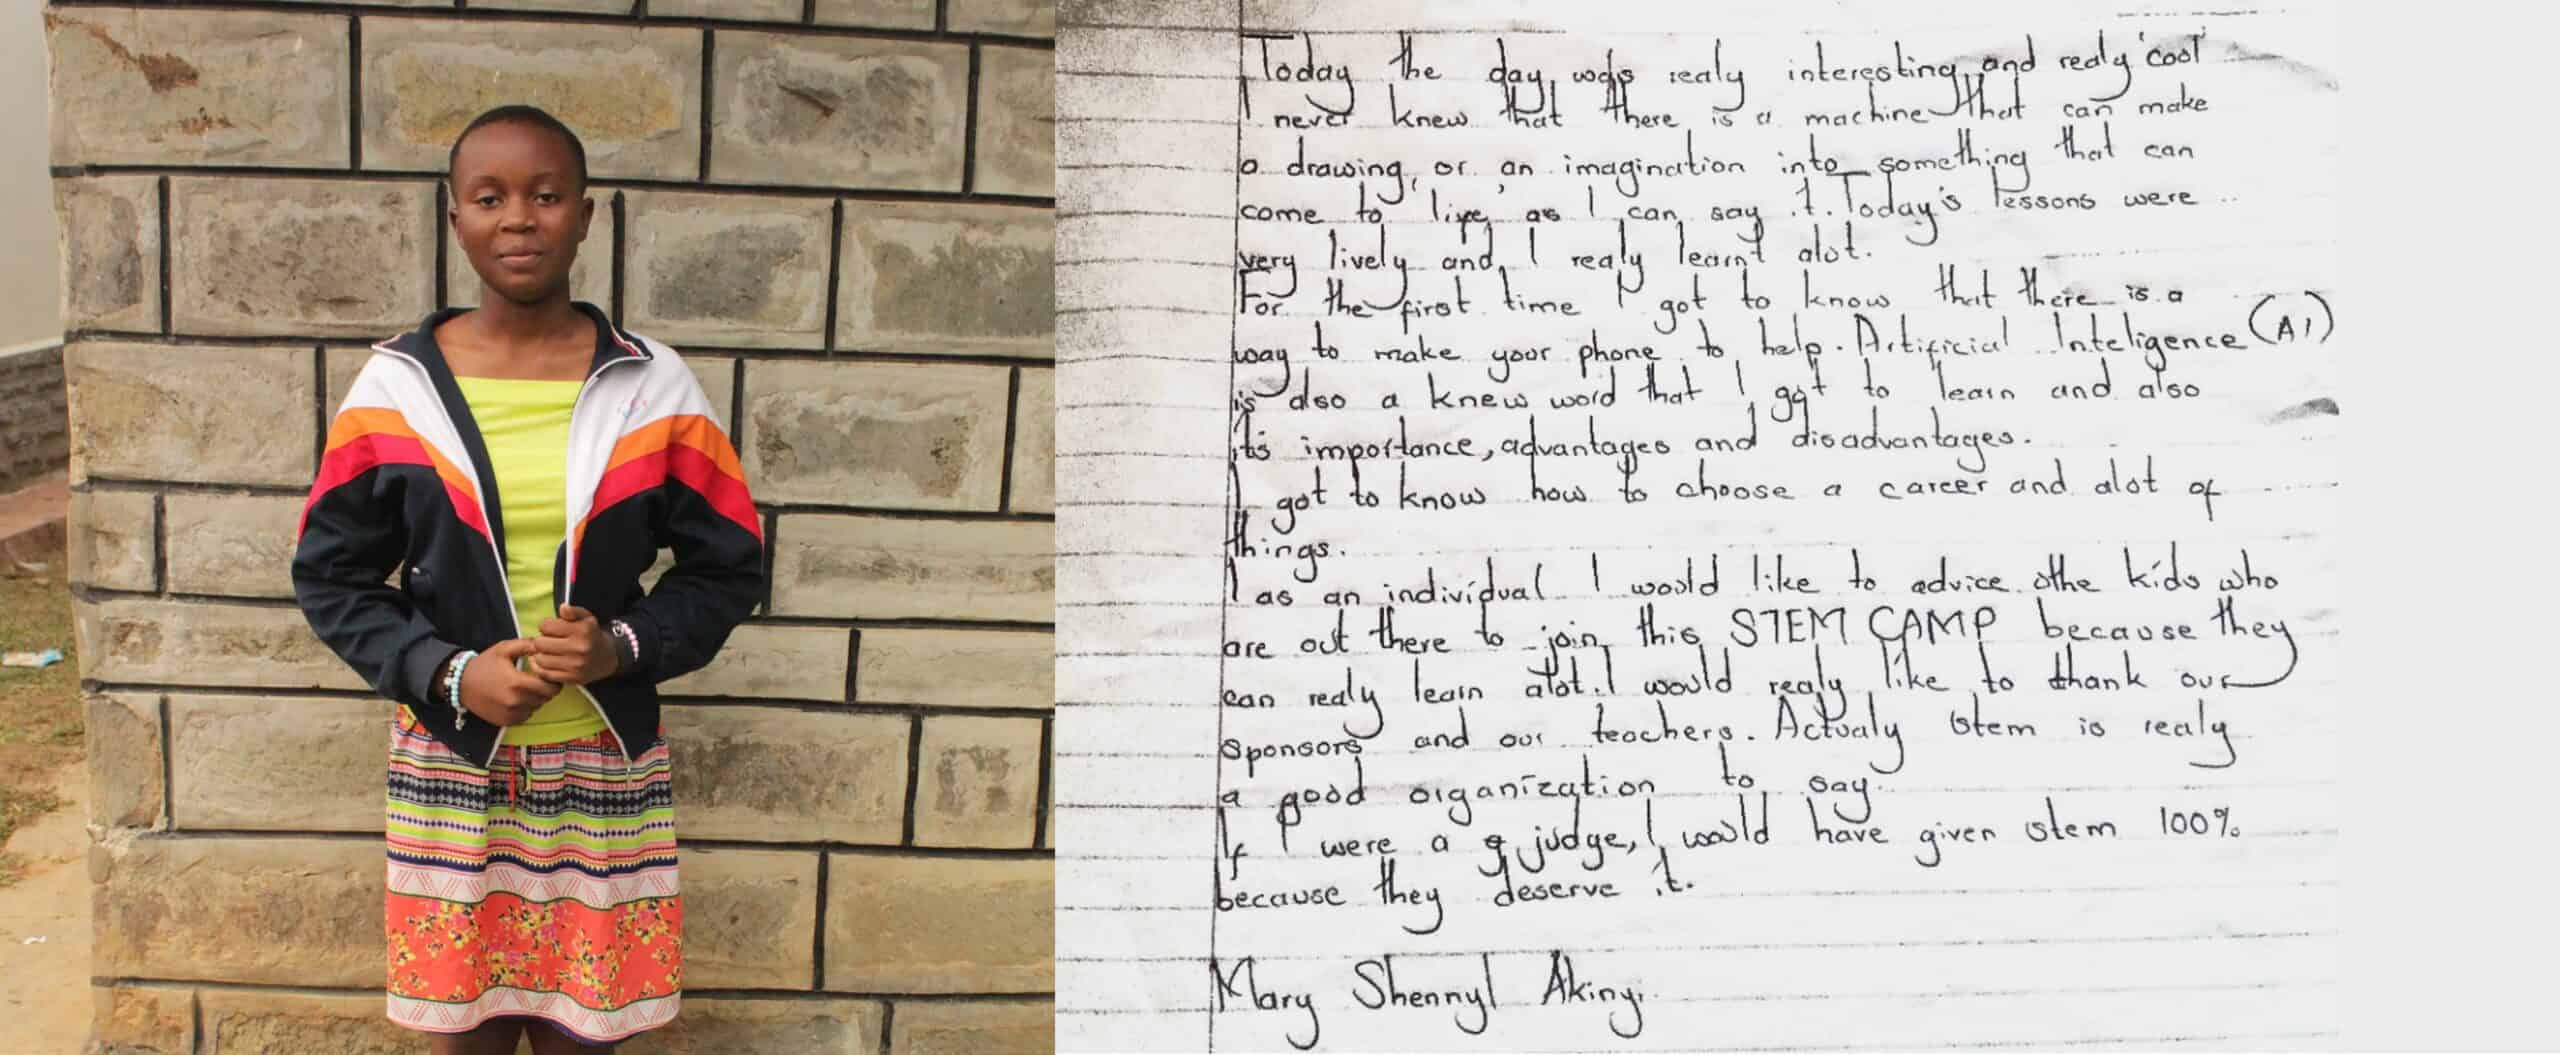 Today the day was realy interesting, and realy 'cool'
I never knew that there is a machine that can make
a drawing, or an imagination into something that can
come to 'life' as I can say it. Today's lessons were
very lively and I realy learnt alot.
For the first time I got to know that there is a
way to make your phone to help. Artificial Inteligence (AI)
is also a knew word that I got to learn and also
it's importance, advantages and disadvantages.
I got to know how to choose a career and alot of
things.
I as an individual I would like to advice othe kids who
are out there to join this STEM CAMP because they
can realy learn alot. I would realy like to thank our
sponsors and our teachers. Actualy stem is realy
a good organization to say.
If I were a judge, I would have given stem 100%
because they deserve it.
Mary Shennyl Akinyi